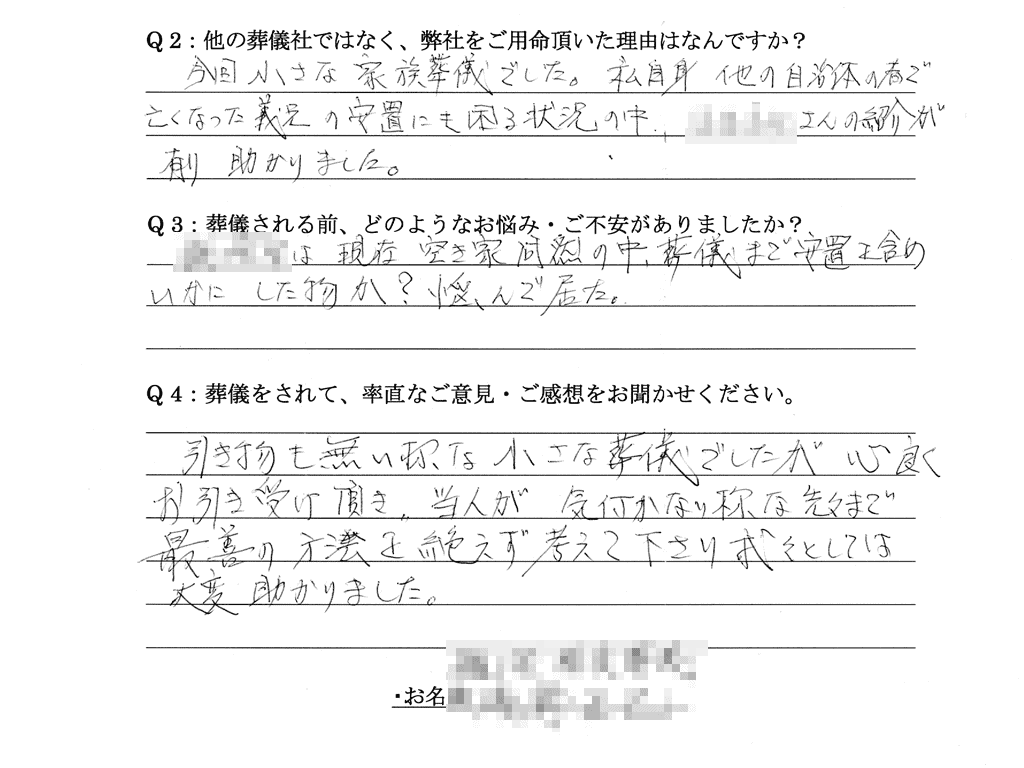 Q2：他の葬儀社ではなく、弊社をご用命頂いた理由はなんですか？
今回 小さな 家族葬儀でした。 私自身 他の自治体の者で
亡くなった 義兄 の 安置にも 困る 状況 の中、 さんの紹介が
有り 助かりました。
Q3：葬儀される前、どのようなお悩み・ご不安がありましたか？
は 現在 空き家 問題の中、葬儀まで 安置を含め
いかに した物 か？ 悩んで 居た。
Q4：葬儀をされて、率直なご意見・ご感想をお聞かせください。
引き物も 無い様な 小さな 葬儀でしたが 心良く
お引き受け 頂き、 当人が 気付かない様な 先々まで
最善の 方法を 絶えず 考えて 下さり 我々としては
大変 助かりました。
・お名